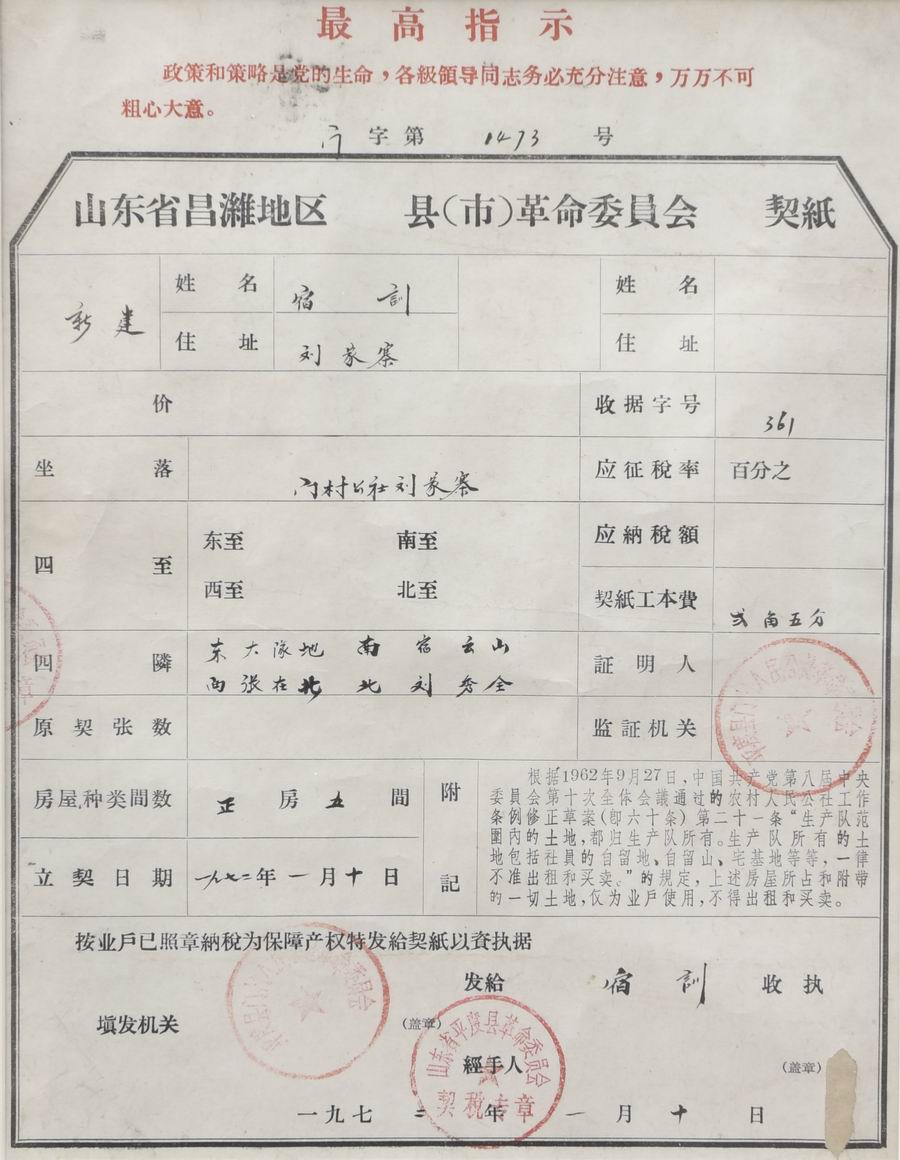 最高指示
政策和策略是党的生命，各級領导同志务必充分注意，万万不可
粗心大意。
字第 1473 号
山东省昌濰地区 县(市)革命委員会 契紙
新建 姓名 宿訓 姓名
住址 刘家寨 住址
价 收据字号 361
坐落 门村公社刘家寨 应征稅率 百分之
四至 东至 南至 应納稅額
西至 北至 契紙工本費 弍角五分
四隣 东大队地 南宿云山 証明人
西张在北 北刘秀全
原契张数 监証机关
房屋种类間数 正房五間 附記
根据1962年9月27日，中国共产党第八届中央
委員会第十次全体会議通过的农村人民公社工作
条例修正草案(即六十条)第二十一条“生产队范
圍內的土地，都归生产队所有。生产队所有的土
地包括社員的自留地、自留山、宅基地等等，一律
不准出租和买卖。”的規定，上述房屋所占和附带
的一切土地，仅为业戶使用，不得出租和买卖。
立契日期 一九七二年一月十日
按业戶已照章納稅为保障产权特发給契紙以資执据
发給 宿訓 收执
塡发机关 (盖章)
經手人 (盖章)
山东省平度县革命委员会
契税专章
一九七二年一月十日